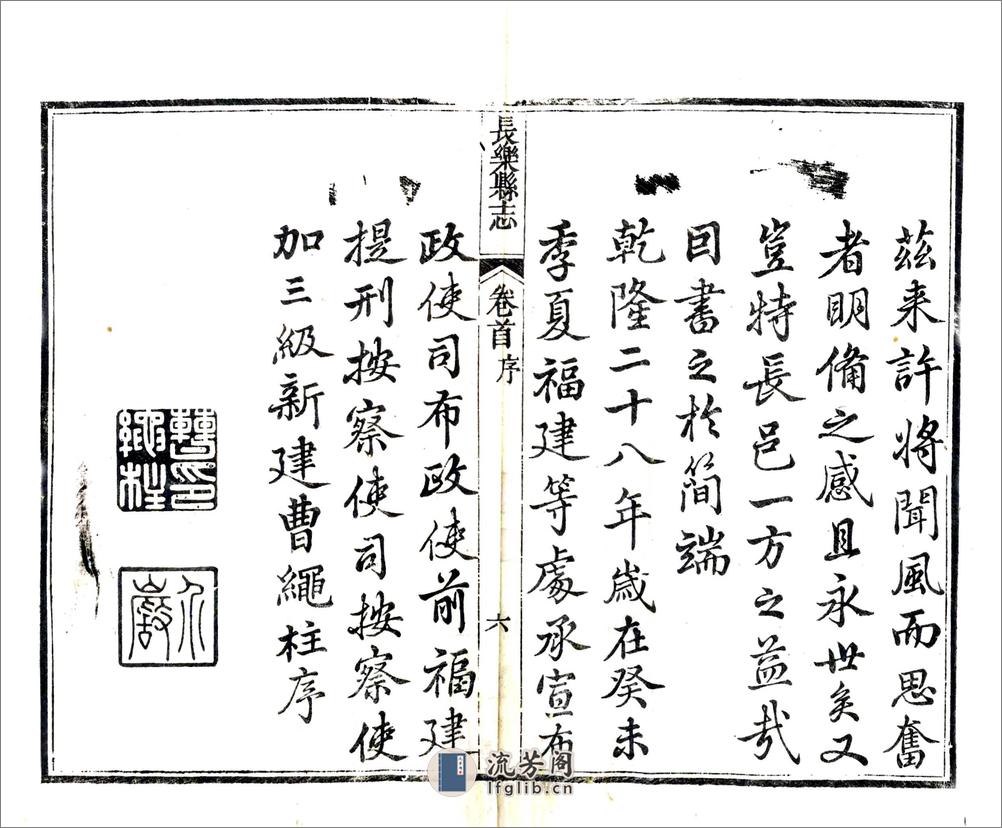 茲来許將聞風而思奮
者明備之感且永世矣又
豈特長邑一方之益哉
因書之於簡端
乾隆二十八年歲在癸未
季夏福建等處承宣布
長樂縣志
卷首 序
六
政使司布政使前福建
提刑按察使司按察使
加三級新建曹繩柱序
曹印繩柱
介巖
流芳阁
lfglib.cn